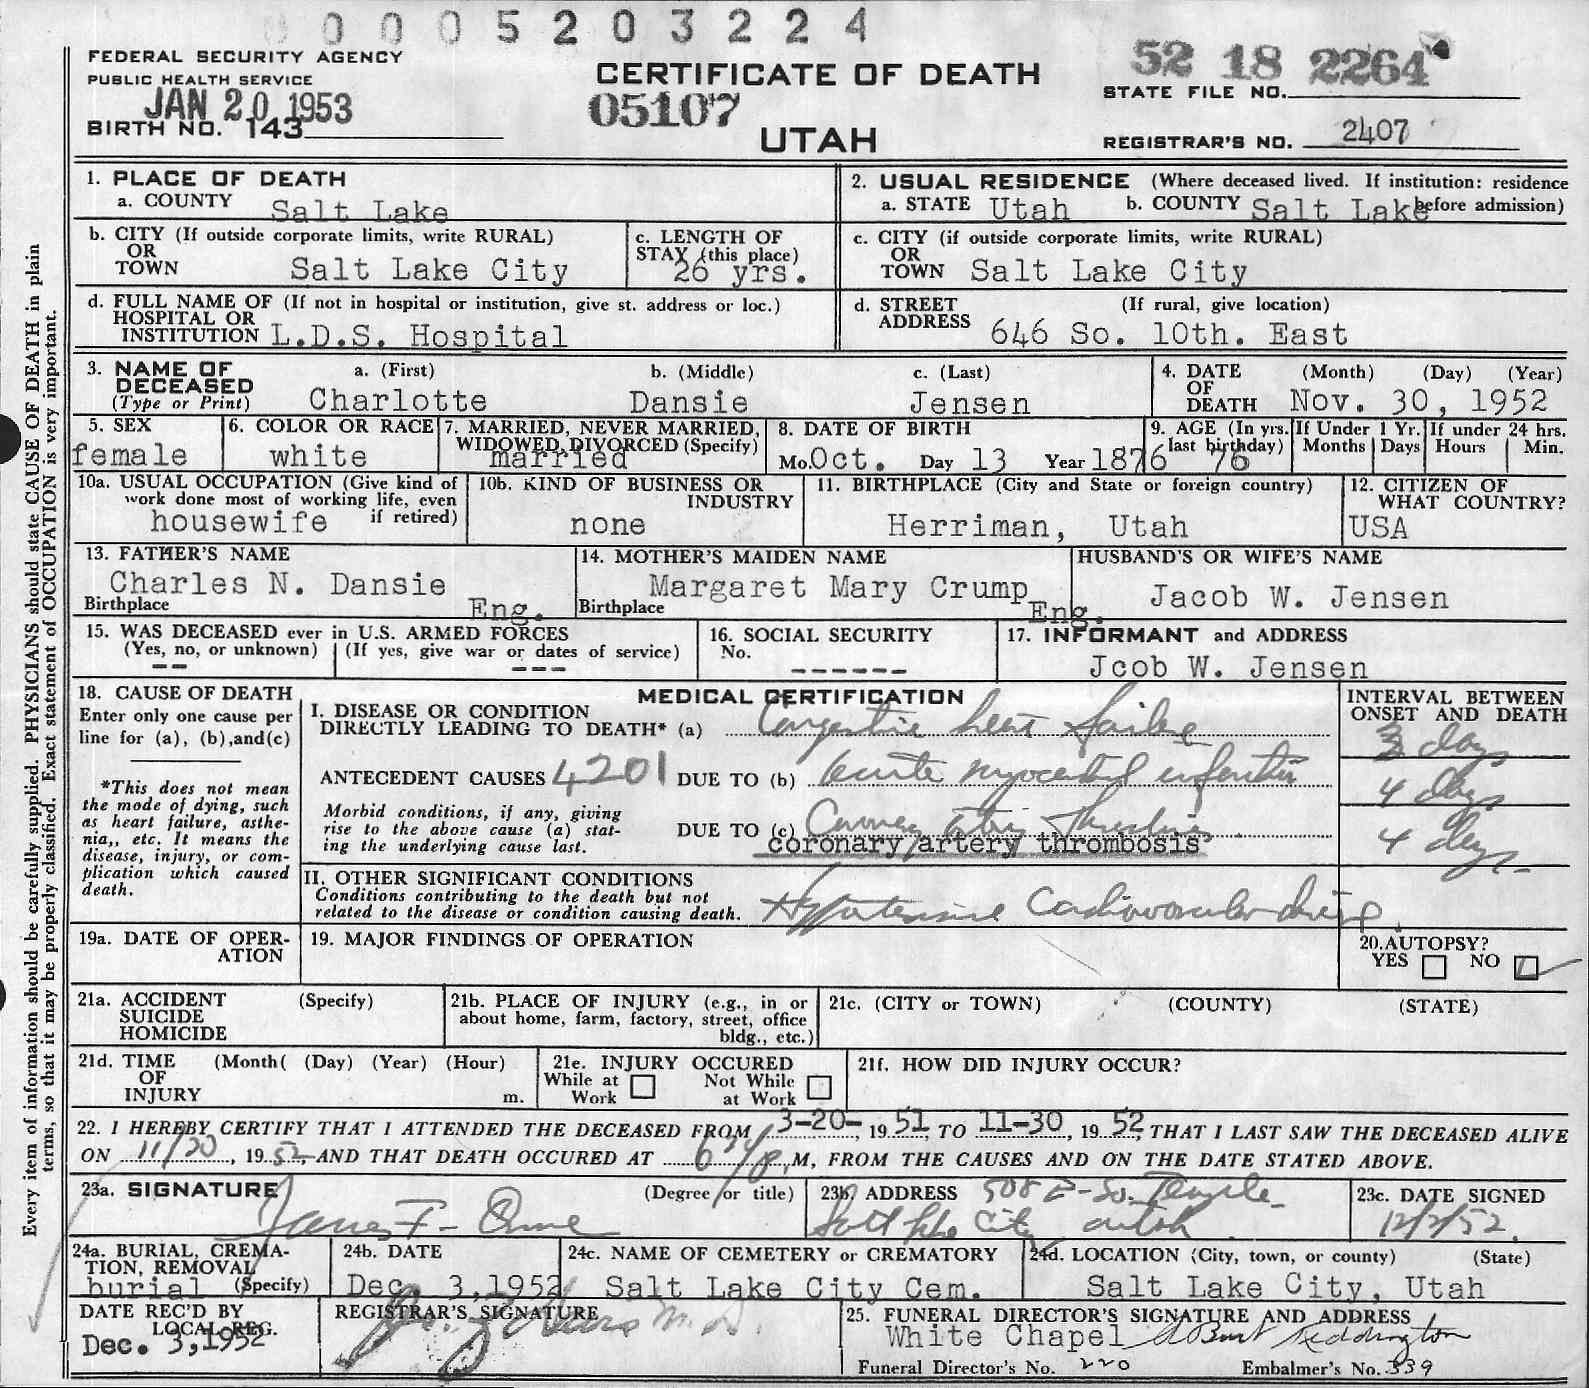 0005203224
FEDERAL SECURITY AGENCY
PUBLIC HEALTH SERVICE
JAN 20 1953
BIRTH NO. 143
CERTIFICATE OF DEATH
05107
UTAH
52 18 2264
STATE FILE NO.
REGISTRAR'S NO. 2407
1. PLACE OF DEATH
a. COUNTY Salt Lake
2. USUAL RESIDENCE (Where deceased lived. If institution: residence before admission)
a. STATE Utah b. COUNTY Salt Lake
b. CITY (If outside corporate limits, write RURAL)
OR
TOWN Salt Lake City
c. LENGTH OF
STAY (this place)
26 yrs.
c. CITY (if outside corporate limits, write RURAL)
OR
TOWN Salt Lake City
d. FULL NAME OF (If not in hospital or institution, give st. address or loc.)
HOSPITAL OR
INSTITUTION L.D.S. Hospital
d. STREET (If rural, give location)
ADDRESS 646 So. 10th. East
3. NAME OF a. (First) b. (Middle) c. (Last)
DECEASED
(Type or Print) Charlotte Dansie Jensen
4. DATE (Month) (Day) (Year)
OF
DEATH Nov. 30, 1952
5. SEX
female
6. COLOR OR RACE
white
7. MARRIED, NEVER MARRIED,
WIDOWED, DIVORCED (Specify)
married
8. DATE OF BIRTH
Mo. Oct. Day 13 Year 1876
9. AGE (In yrs.
last birthday)
76
If Under 1 Yr.
Months Days
If under 24 hrs.
Hours Min.
10a. USUAL OCCUPATION (Give kind of
work done most of working life, even
if retired)
housewife
10b. KIND OF BUSINESS OR
INDUSTRY
none
11. BIRTHPLACE (City and State or foreign country)
Herriman, Utah
12. CITIZEN OF
WHAT COUNTRY?
USA
13. FATHER'S NAME
Charles N. Dansie
Birthplace Eng.
14. MOTHER'S MAIDEN NAME
Margaret Mary Crump
Birthplace Eng.
HUSBAND'S OR WIFE'S NAME
Jacob W. Jensen
15. WAS DECEASED ever in U.S. ARMED FORCES
(Yes, no, or unknown) (If yes, give war or dates of service)
-- ---
16. SOCIAL SECURITY
No.
------
17. INFORMANT and ADDRESS
Jcob W. Jensen
18. CAUSE OF DEATH
Enter only one cause per
line for (a), (b),and(c)
*This does not mean
the mode of dying, such
as heart failure, asthe-
nia,, etc. It means the
disease, injury, or com-
plication which caused
death.
MEDICAL CERTIFICATION
I. DISEASE OR CONDITION
DIRECTLY LEADING TO DEATH* (a) Congestive heart failure
ANTECEDENT CAUSES 4201 DUE TO (b) Acute myocardial infarction
Morbid conditions, if any, giving
rise to the above cause (a) stat-
ing the underlying cause last.
DUE TO (c) Coronary artery thrombosis
coronary artery thrombosis
INTERVAL BETWEEN
ONSET AND DEATH
3 days
4 days
4 days
II. OTHER SIGNIFICANT CONDITIONS
Conditions contributing to the death but not
related to the disease or condition causing death.
Hypertensive Cardiovascular disease
19a. DATE OF OPER-
ATION
19. MAJOR FINDINGS OF OPERATION
20. AUTOPSY?
YES NO
21a. ACCIDENT (Specify)
SUICIDE
HOMICIDE
21b. PLACE OF INJURY (e.g., in or
about home, farm, factory, street, office
bldg., etc.)
21c. (CITY or TOWN) (COUNTY) (STATE)
21d. TIME (Month( (Day) (Year) (Hour)
OF
INJURY m.
21e. INJURY OCCURED
While at Work Not While at Work
21f. HOW DID INJURY OCCUR?
22. I HEREBY CERTIFY THAT I ATTENDED THE DECEASED FROM 3-20-, 1951, TO 11-30, 1952, THAT I LAST SAW THE DECEASED ALIVE
ON 11/30, 1952, AND THAT DEATH OCCURED AT P.M, FROM THE CAUSES AND ON THE DATE STATED ABOVE.
23a. SIGNATURE (Degree or title)
James F. Orme
23b. ADDRESS 508 E-So. Temple
Salt Lake City Utah
23c. DATE SIGNED
12/2/52
24a. BURIAL, CREMA-
TION, REMOVAL
burial (Specify)
24b. DATE
Dec. 3, 1952
24c. NAME OF CEMETERY or CREMATORY
Salt Lake City Cem.
24d. LOCATION (City, town, or county) (State)
Salt Lake City, Utah
DATE REC'D BY
LOCAL REG.
Dec. 3, 1952
REGISTRAR'S SIGNATURE
M.D.
25. FUNERAL DIRECTOR'S SIGNATURE AND ADDRESS
White Chapel
Funeral Director's No. 220 Embalmer's No. 339
Every item of information should be carefully supplied. PHYSICIANS should state CAUSE OF DEATH in plain
terms, so that it may be properly classified. Exact statement of OCCUPATION is very important.